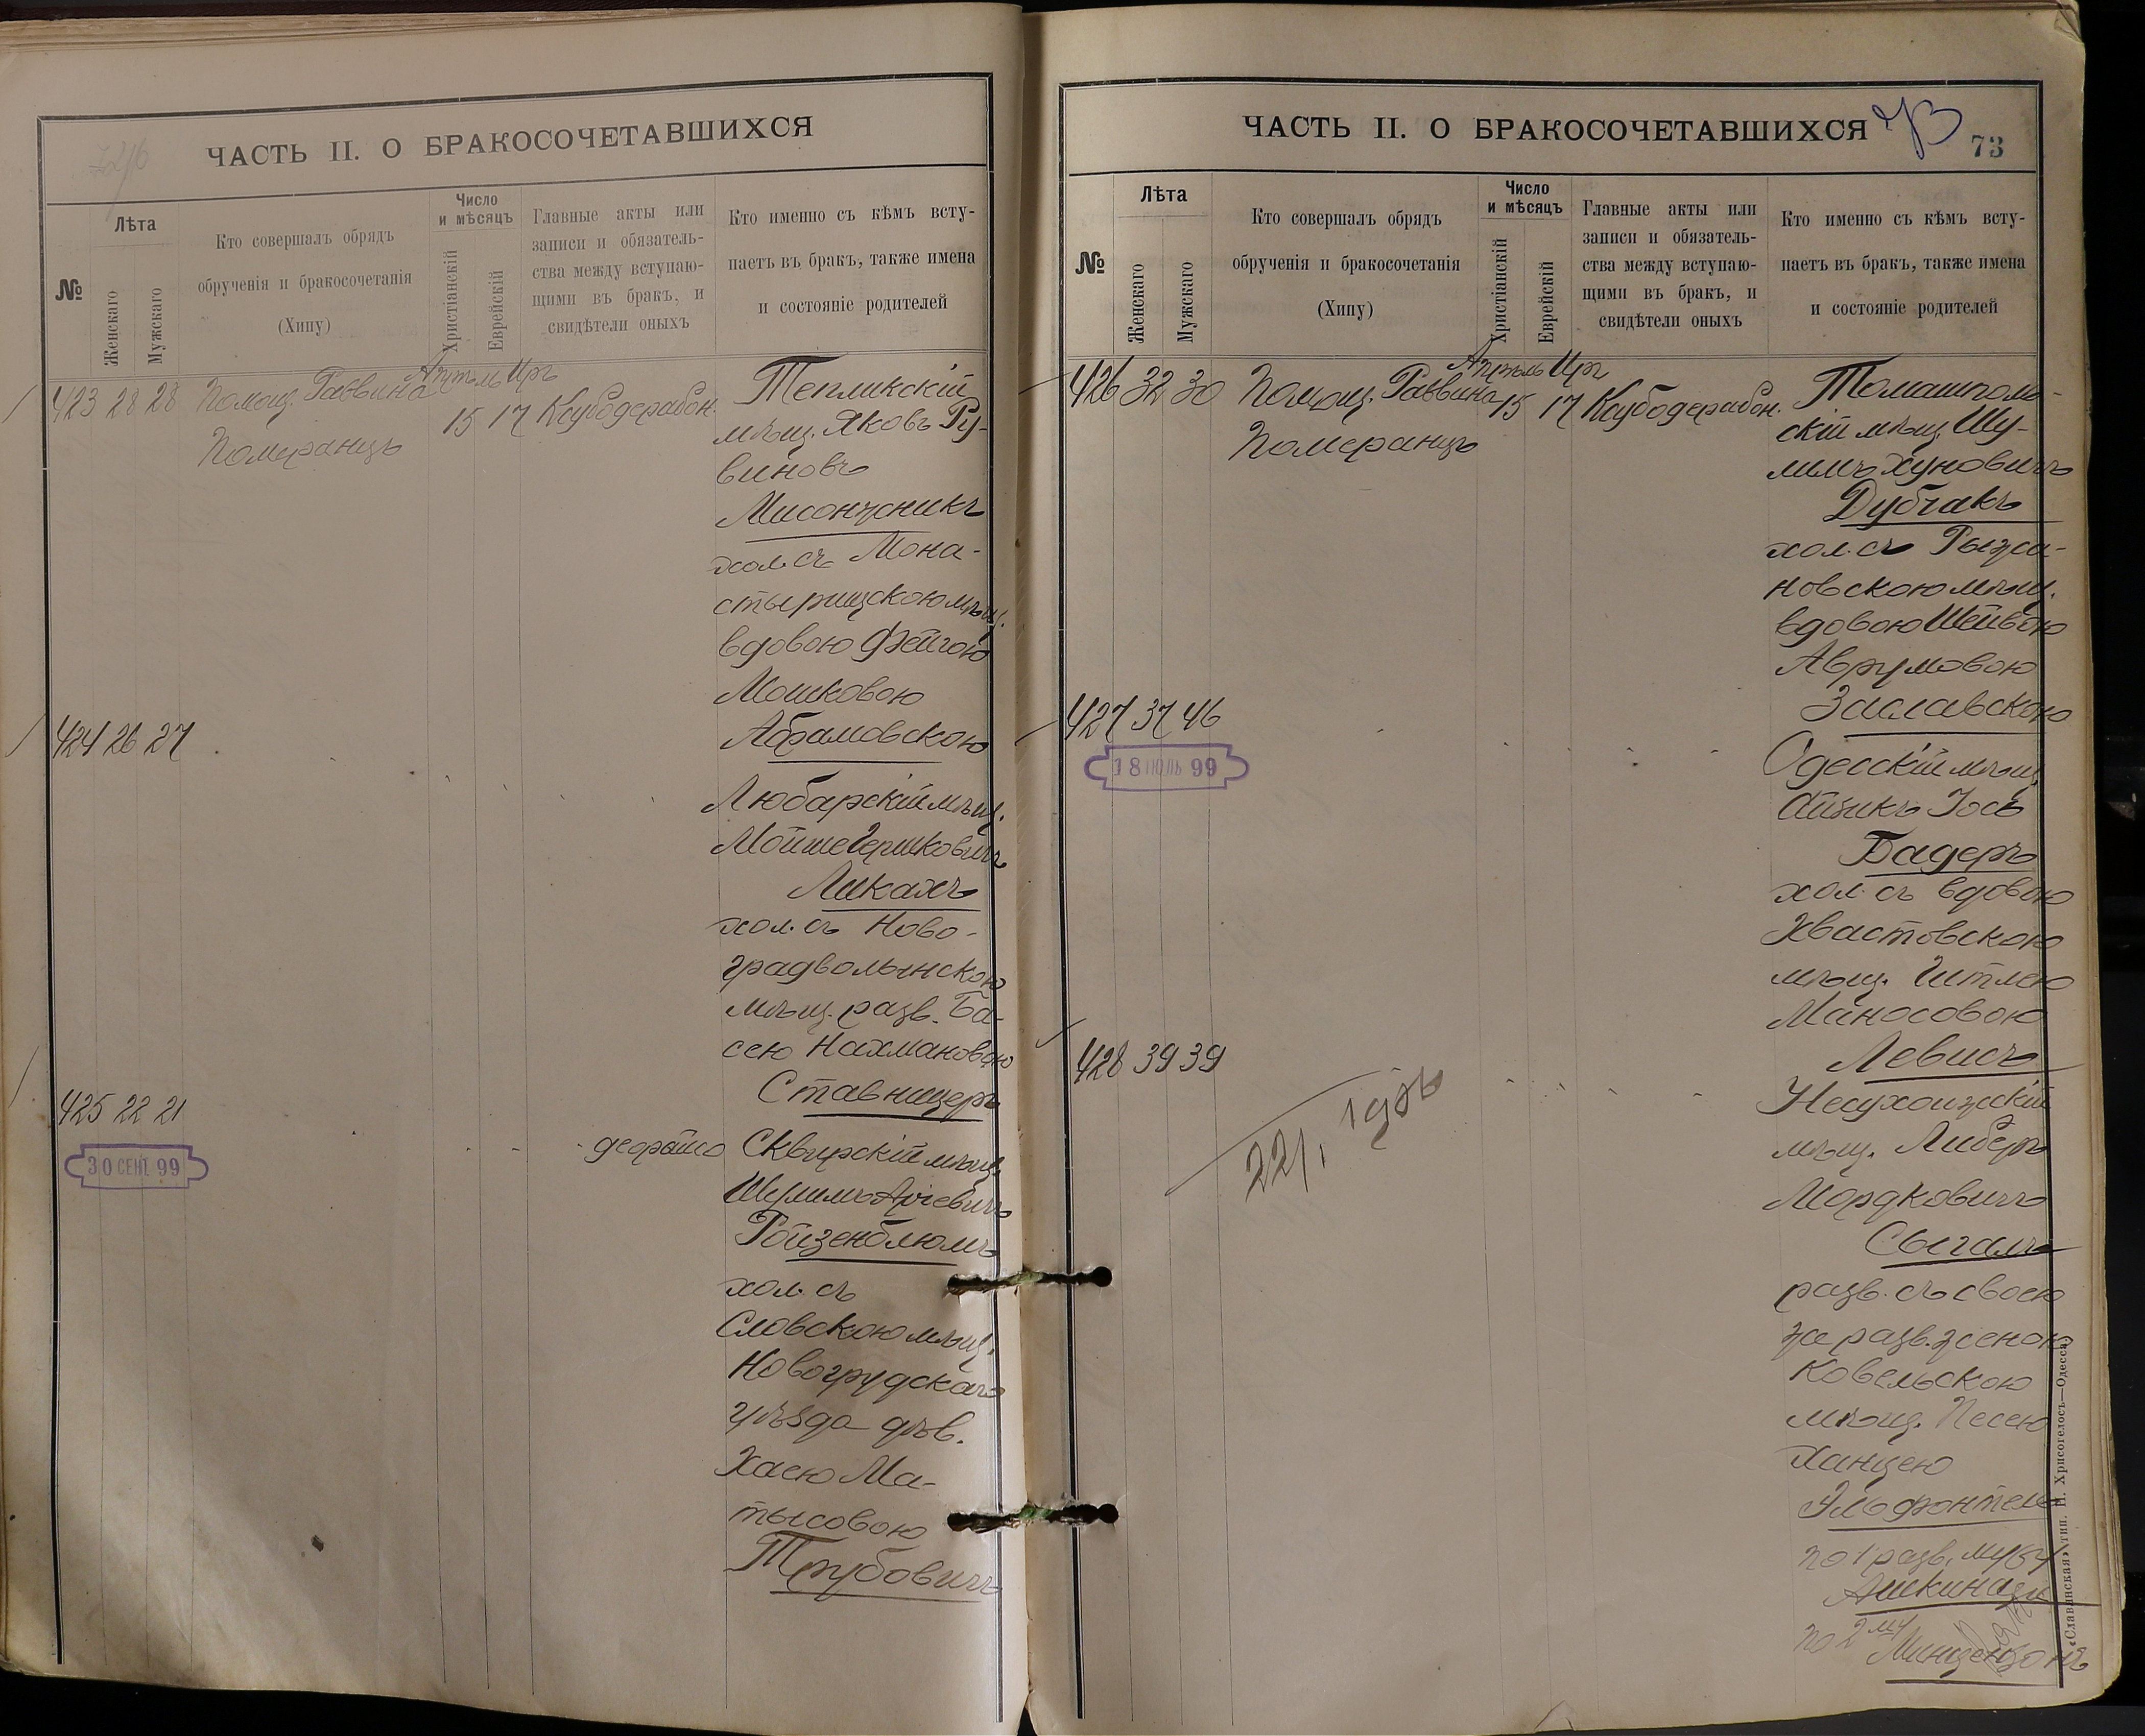 ЧАСТЬ II. О БРАКОСОЧЕТАВШИХСЯ
№
Лѣта
Женскаго
Мужскаго
Кто совершалъ обрядъ
обрученія и бракосочетанія
(Хипу)
Число
и мѣсяцъ
Христіанскій
Еврейскій
Главные акты или
записи и обязатель-
ства между вступаю-
щими въ бракъ, и
свидѣтели оныхъ
Кто именно съ кѣмъ всту-
паетъ въ бракъ, также имена
и состояніе родителей
423 28 28 Помощ. Раввина
Померанцъ
Апрѣль Иръ
15 17
Каубодерабон.
Тепликскій
мѣщ. Яковъ Ру-
виновъ
Мисонжникъ
хол. съ Мона-
стырищскою мѣщ.
вдовою Фейгою
Мошковою
Абрамовскою
424 26 27
Любарскій мѣщ.
Мойше Гершковичъ
Ликахъ
хол. съ Ново-
градволынскою
мѣщ. разв. Ба-
сею Нахмановою
Ставницеръ
425 22 21
30 СЕНТ 99
деорайсо
Сквирскій мѣщ.
Шулимъ Аріевичъ
Ройзенблюмъ
хол. съ
Словскою мѣщ.
Новогрудскаго
уѣзда дѣв.
Хаею Ма-
тысовою
Трубовичъ
ЧАСТЬ II. О БРАКОСОЧЕТАВШИХСЯ
73
73
№
Лѣта
Женскаго
Мужскаго
Кто совершалъ обрядъ
обрученія и бракосочетанія
(Хипу)
Число
и мѣсяцъ
Христіанскій
Еврейскій
Главные акты или
записи и обязатель-
ства между вступаю-
щими въ бракъ, и
свидѣтели оныхъ
Кто именно съ кѣмъ всту-
паетъ въ бракъ, также имена
и состояніе родителей
426 32 30 Помощ. Раввина
Померанцъ
Апрѣль Иръ
15 17
Каубодерабон.
Томашполь-
скій мѣщ. Шу-
лимъ Хуновичъ
Дубчакъ
хол. съ Рыжа-
новскою мѣщ.
вдовою Шейвою
Аврумовою
Заславскою
427 37 46
18 ІЮЛЬ 99
Одесскій мѣщ.
Айзикъ Іось
Бадеръ
хол. съ вдовою
Хвастовскою
мѣщ. Гитлею
Маносовою
Левисъ
428 39 39
Несухоижскій
мѣщ. Либеръ
Мордковичъ
Сыгалъ
разв. съ своею
же разв. женою
Ковельскою
мѣщ. Песею
Ханцею
Эльфонтель
по 1 разв. мужу
Ашкиназъ
по 2му
Линцензонъ
«Славянская» тип. Н. Хрисогелосъ—Одесса